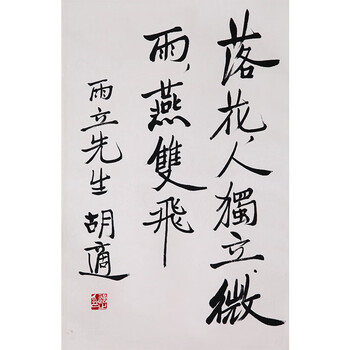 落花,人獨立.微
雨,燕雙飛
雨立先生 胡適